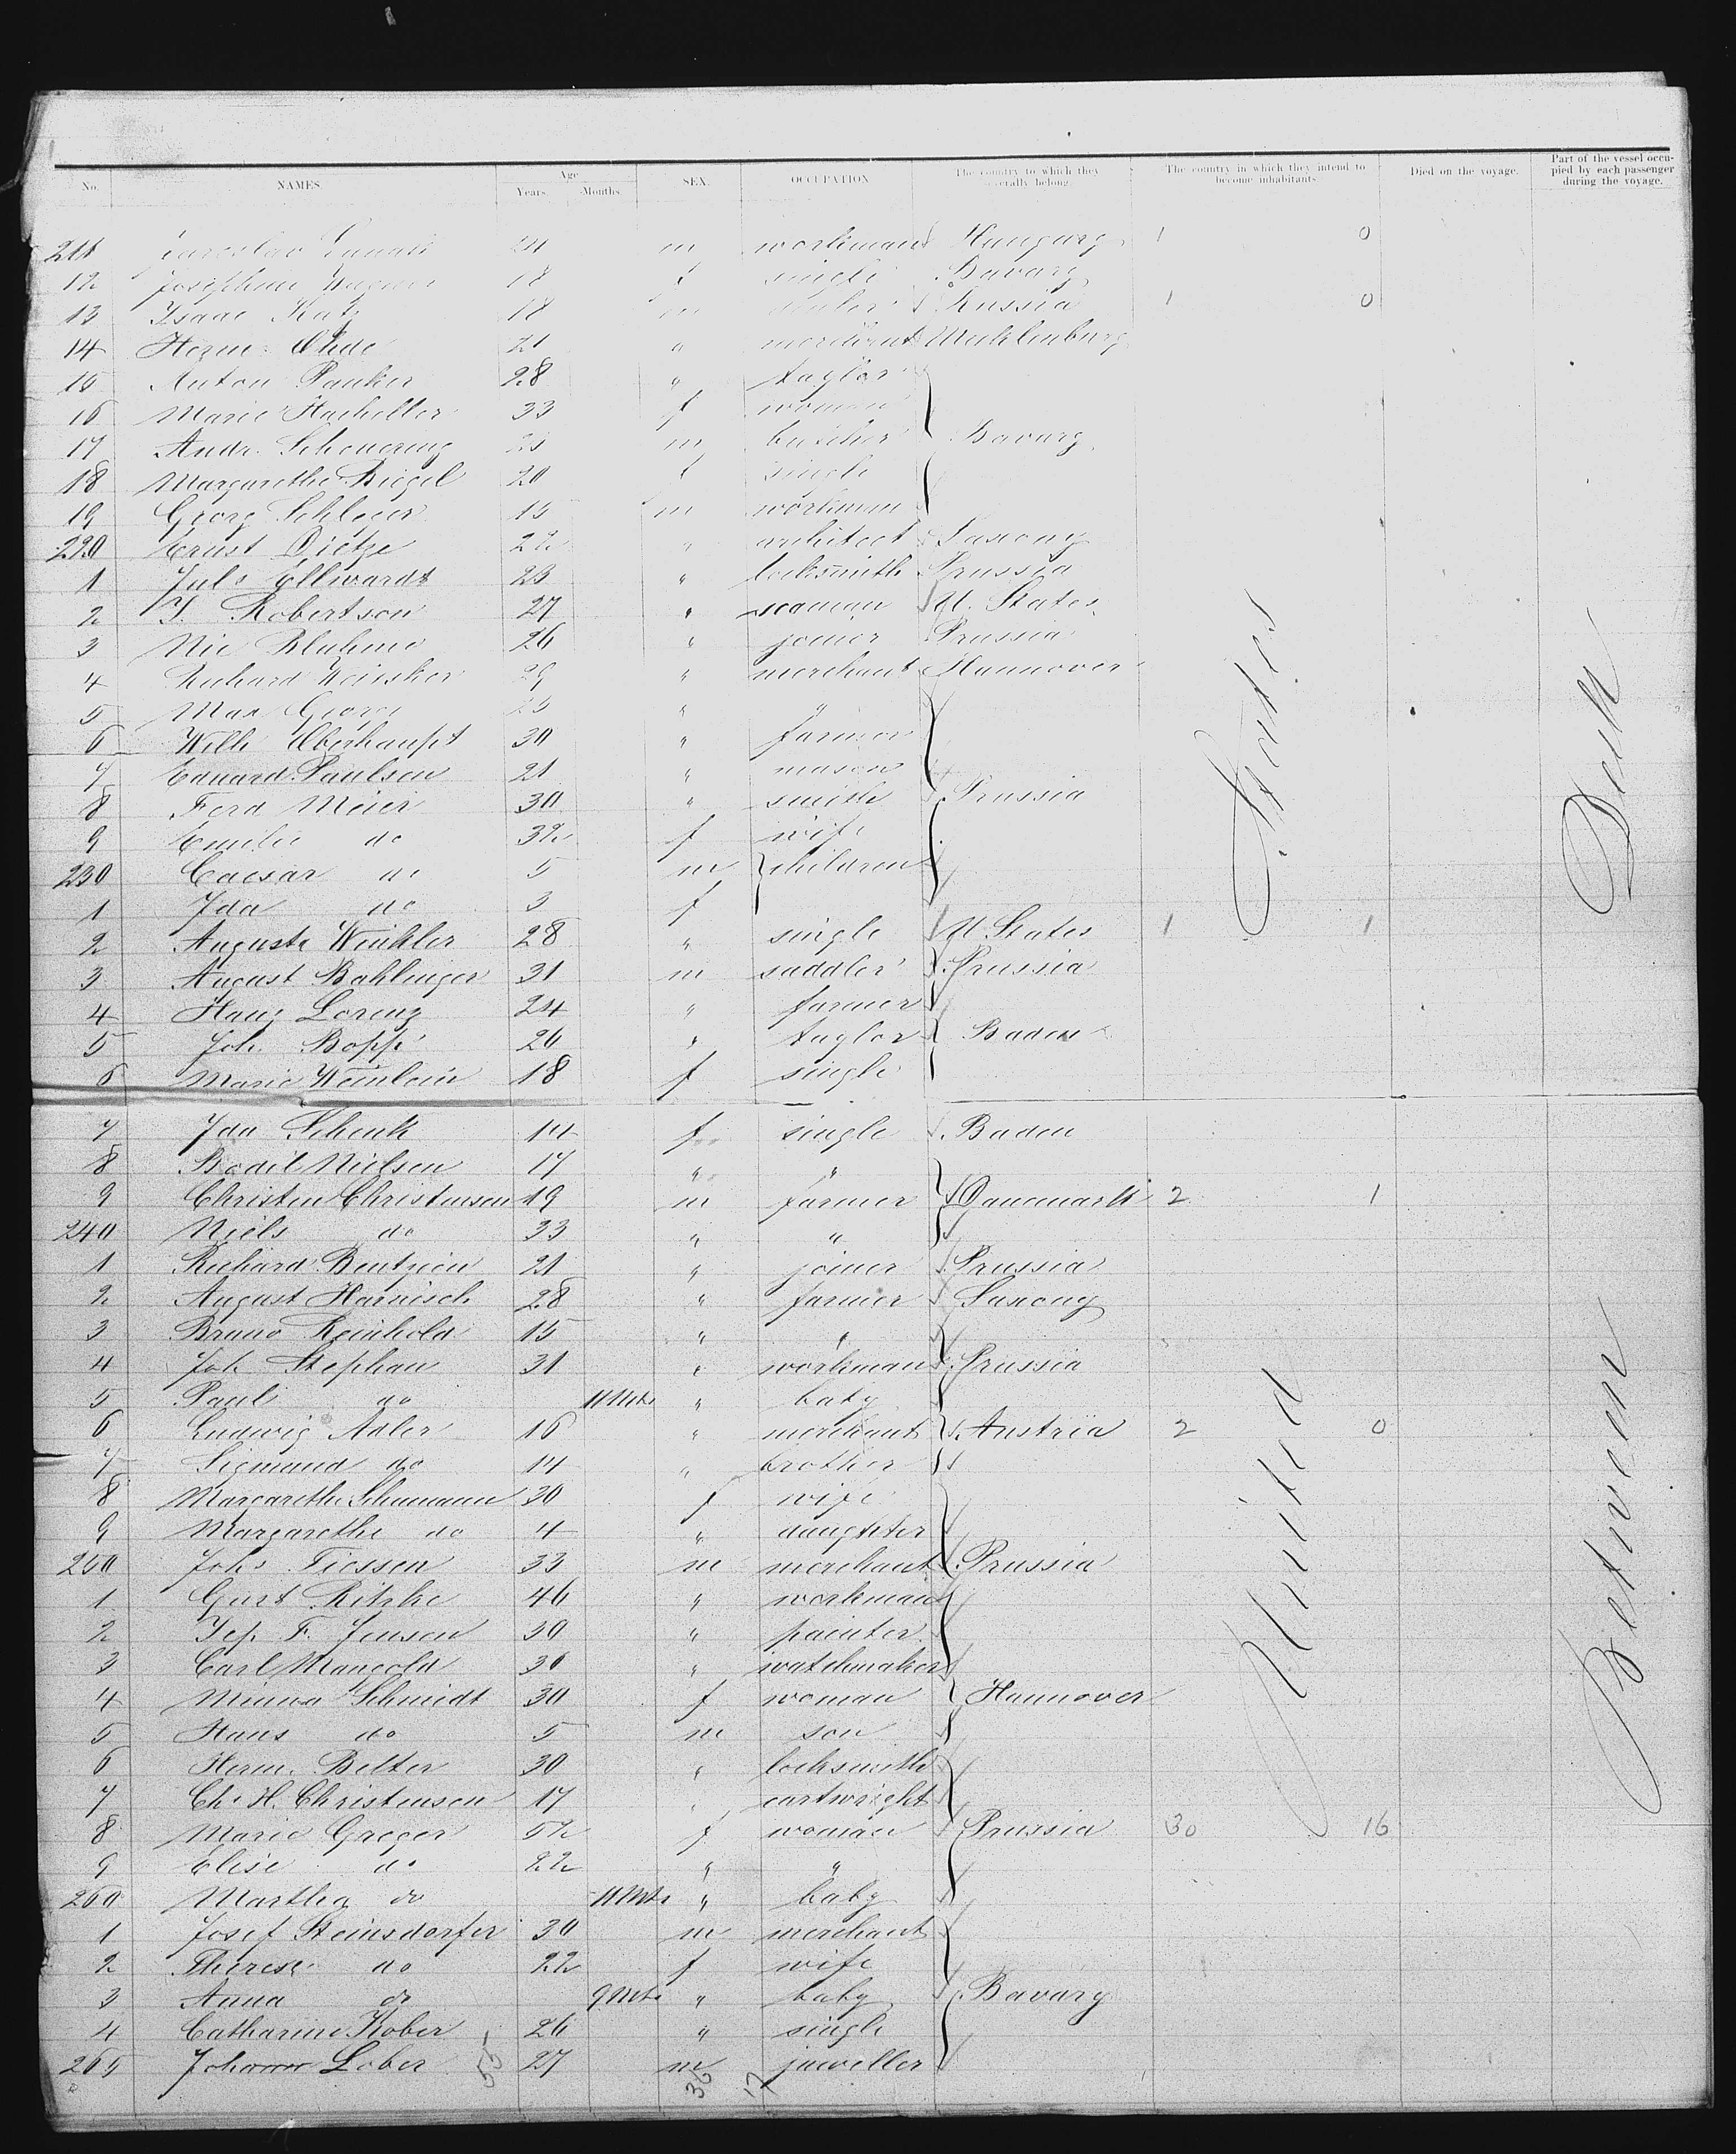 No. NAMES. Age Years. Months. SEX. OCCUPATION The country to which they severally belong. The country in which they intend to become inhabitants Died on the voyage. Part of the vessel occupied by each passenger during the voyage.
211 24 m workman Hungary 1 0
12 Josephine 18 f single Bavary
13 Isaac Katz 18 m Russia 1 0
14 Herm. Ohde 21 " merchant Mecklenburg
15 Anton Panker 28 " taylor
16 Marie Hacheller 33 f woman
17 Andr. Scheuering m butcher Bavary
18 Margarethe Biegel 20 f single
19 Georg Schleier 15 m workman
220 Ernst Dietze 22 " architect Saxony
1 Juls Ellwardt 23 " locksmith Prussia
2 J. Robertson 27 " seaman U. States
3 Nic Bluhme 26 " joiner Prussia
4 Richard Weinsker 29 " merchant Hannover
5 Max Georg " "
6 Wilh Oberhaupt 30 " farmer
7 Eduard Paulsen 21 " mason
8 Ferd Meier 30 " smith Prussia
9 Emilie do 32 f wife
230 Caesar do 5 m children
1 Ida do 3 f
2 Auguste Winkler 28 " single U States 1 1
3 August Bahlinger 31 m saddler Prussia
4 Hans Lorenz 24 " farmer
5 Joh. Bopp 26 " taylor Baden
6 Marie Weinlein 18 f single
7 Ida Schenk 14 f single Baden
8 Bodil Nielsen 17 " "
9 Christen Christensen 19 m farmer Danemark 2 1
240 Niels do 33 " "
1 Richard Bentzien 21 " joiner Prussia
2 August Harnisch 28 " farmer Saxony
3 Bruno Reinhold 15 " "
4 Joh Stephan 31 " workman Prussia
5 Paul do 11 Mts " baby
6 Ludwig Adler 16 " merchant Austria 2 0
7 Sigmund do 14 " brother
8 Margarethe Schumann 30 f wife
9 Margarethe do 4 " daughter
250 Johs Tiessen 33 m merchant Prussia
1 Gust Ritzke 46 " workman
2 Jep F. Jensen 30 " painter
3 Carl Mangold 30 " watchmaker
4 Minna Schmidt 30 f woman Hannover
5 Hans do 5 m son
6 Herm. Belter 30 " locksmith
7 Chr H. Christensen 17 " cartwright
8 Marie Greger 52 f woman Prussia 30 16
9 Elise do 22 " "
260 Martha do 11 Mts " baby
1 Josef Steinsdorfer 30 m merchant
2 Therese do 22 f wife
3 Anna do 9 Mts " baby Bavary
4 Catharine Kober 26 " single
265 Johann Lober 27 m juweller
55 36 17
United States
Between Deck